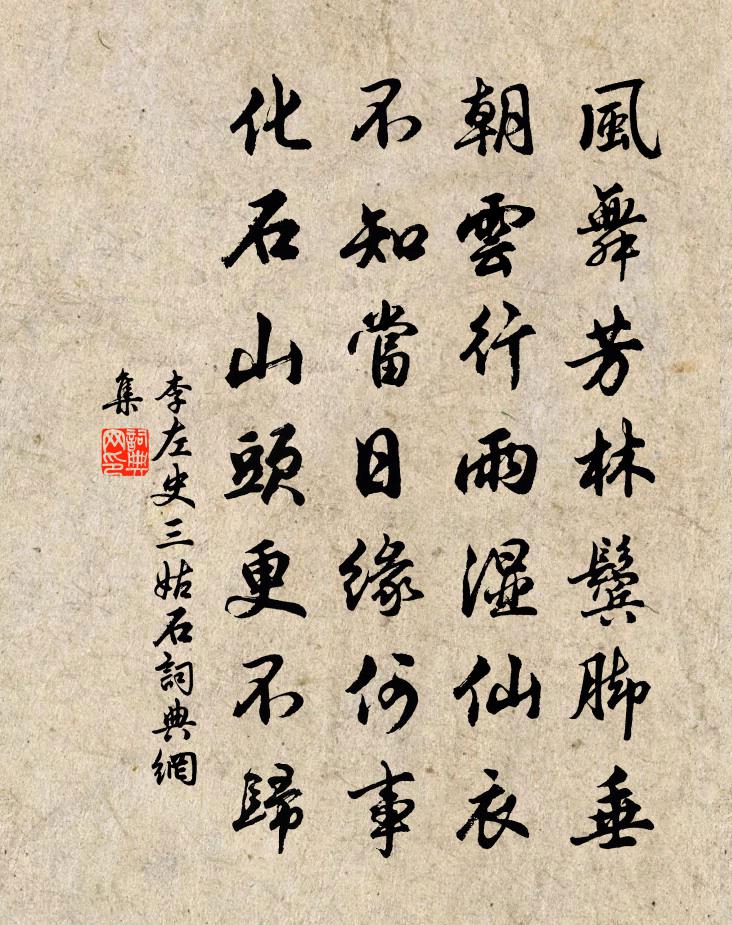 風舞芳林鬢脚垂
朝雲行雨濕仙衣
不知當日緣何事
化石山頭更不歸
李左史三姑石詞典網
集
詞典
网印